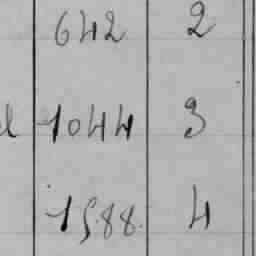 642 2
1044 3
1588 4